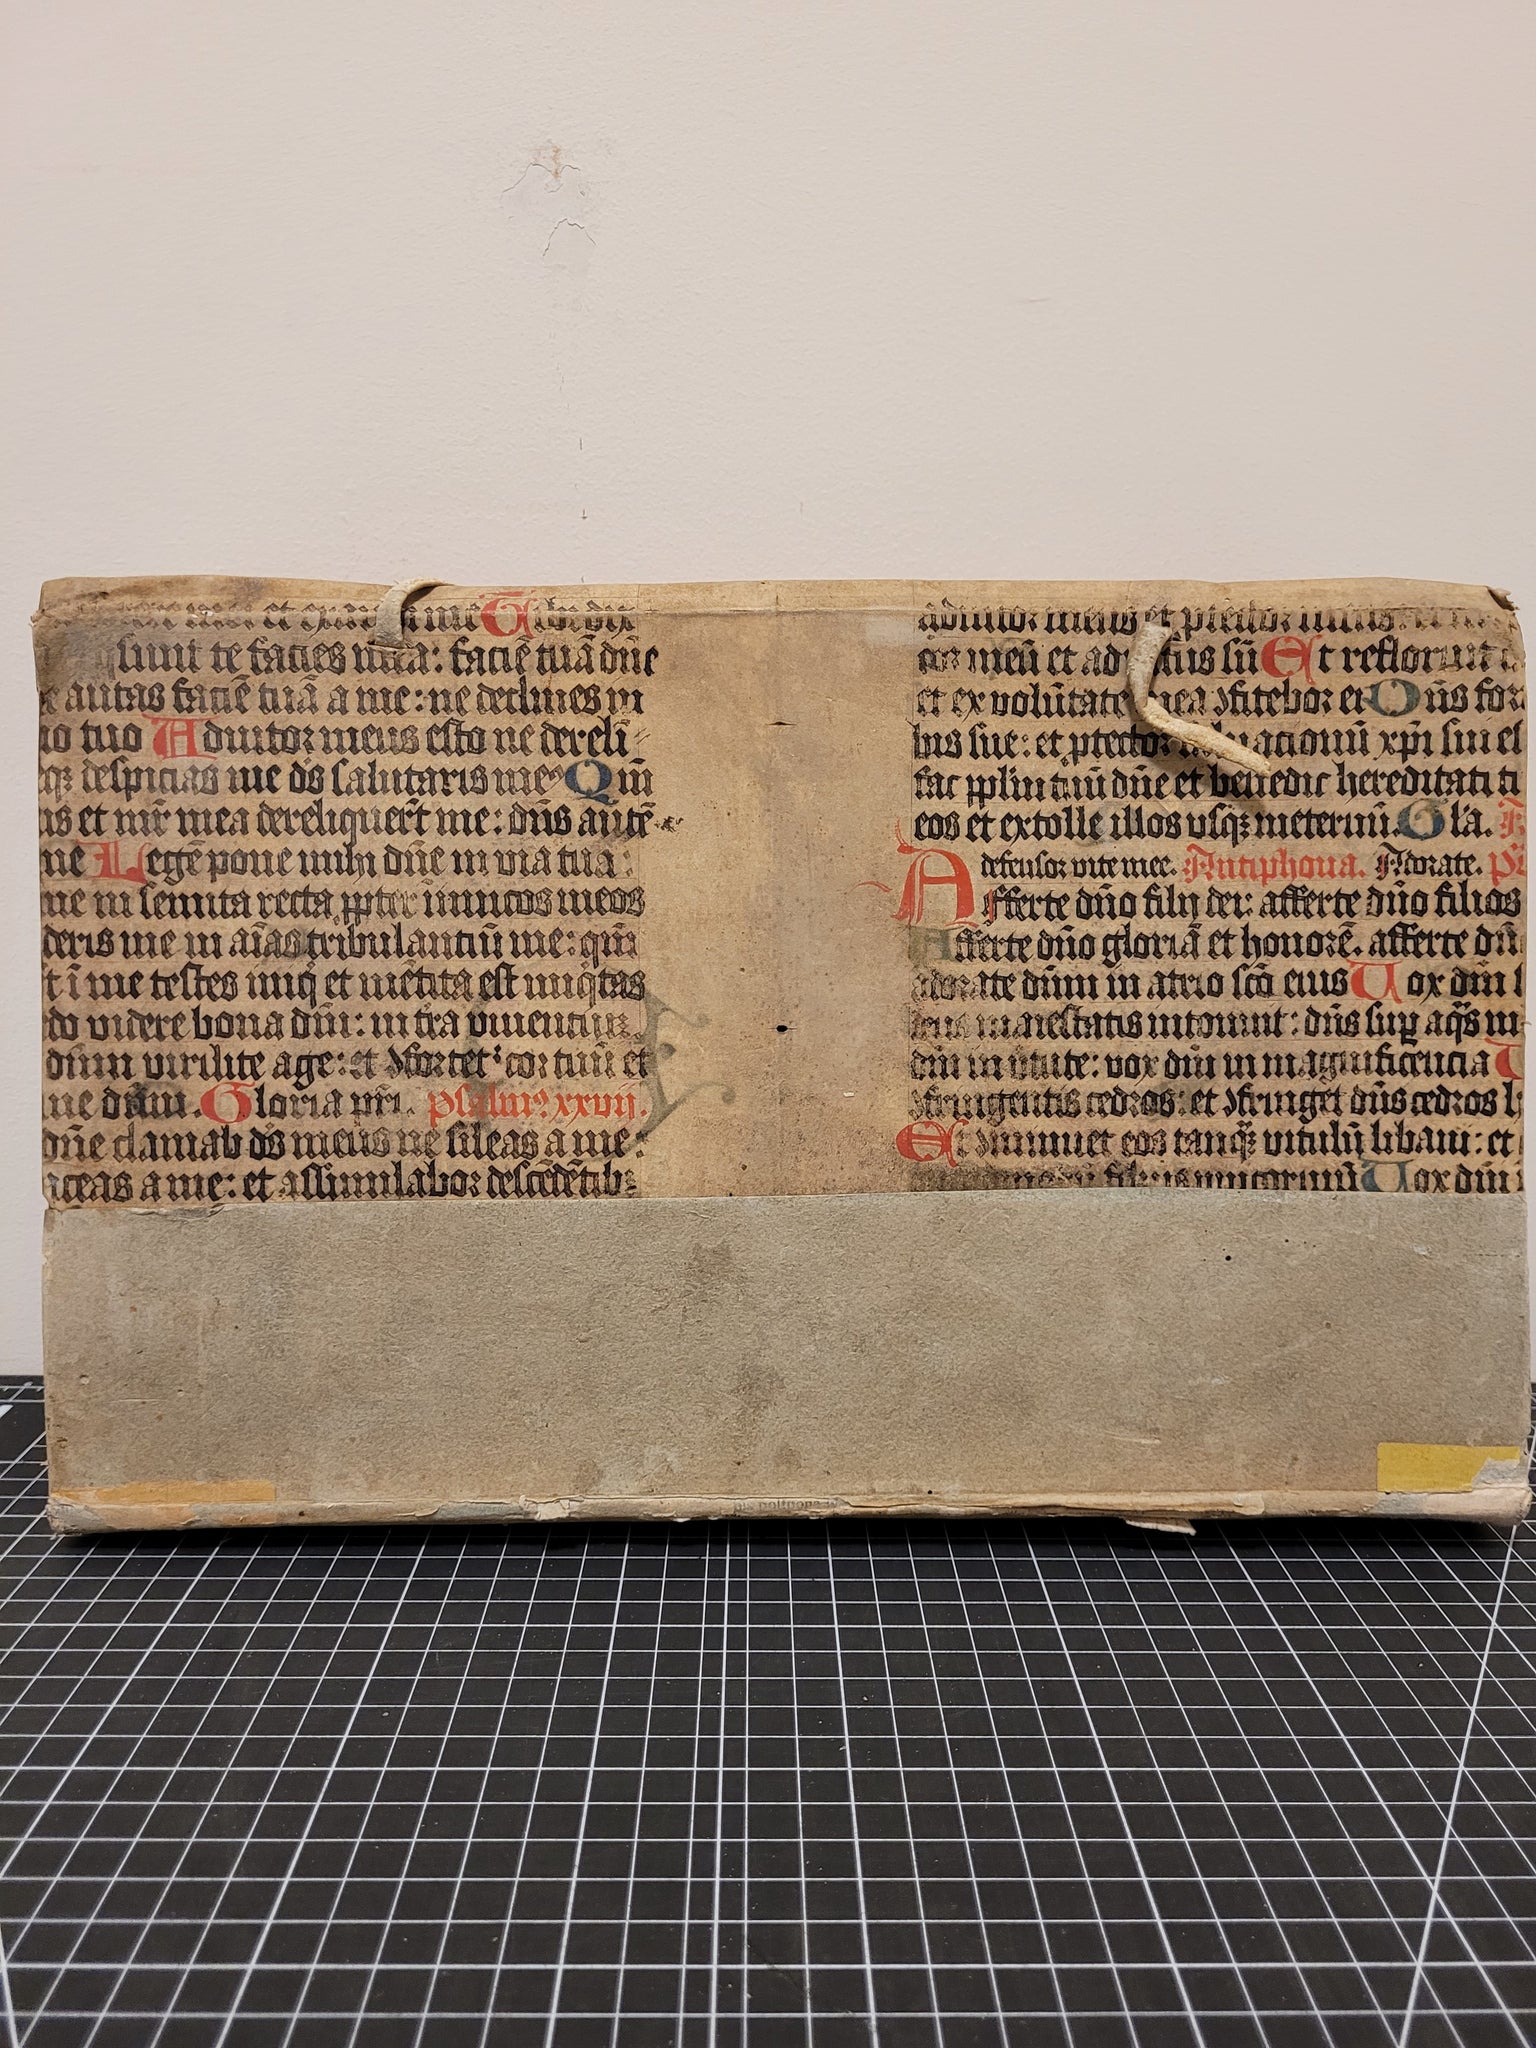 me Tibi dix
sunt te facies mea: faciē tuā dn̄e
autas faciē tuā a me: ne declines in
io tuo Adiutor meus esto ne dereli
qꝫ despicias me ds̄ salutaris me Qm̄
us et mr̄ mea dereliquer̄t me: dn̄s autē
me Legē pone michi dn̄e in via tua:
me in semita recta ꝓpter inimicos meos
deris me in aīas tribulantiū me: qm̄
t ī me testes iniq̄ et mētita est iniq̄tas
do videre bona dn̄i: in tr̄a viuentiū:
dn̄m virilit̄e age: et ꝯfortet' cor tuū et
ne dn̄m. Gloria pr̄i. psalmꝰ xxvij.
dn̄e clamab ds̄ meus ne sileas a me:
aceas a me: et assimilabor descēdētib:
adiutor meus et ptector meus:
cor meū et adiutus sū Et refloruit
et ex volūtate mea ꝯfitebor ei Dn̄s for
bis sue: et ptector saluacionū xp̄i sui est
fac pplm tuū dn̄e et benedic hereditati ti
eos et extolle illos vsqꝫ in eternū. Gl'a.
defensor vite mee. Antiphona. Adorate.
Afferte dn̄o filij dei: afferte dn̄o filios
Afferte dn̄o gloriā et honorē. afferte dn̄
adorate dn̄m in atrio scō eius Uox dn̄i
deus maiestatis intonuit: dn̄s sup aq̄s m
dn̄i in v̄tute: vox dn̄i in magnificencia
ꝯfringentis cedros: et ꝯfringet dn̄s cedros l
Et ꝯminuet eos tanqꝫ vitulū libani: et
filius unicorniū Uox dn̄i